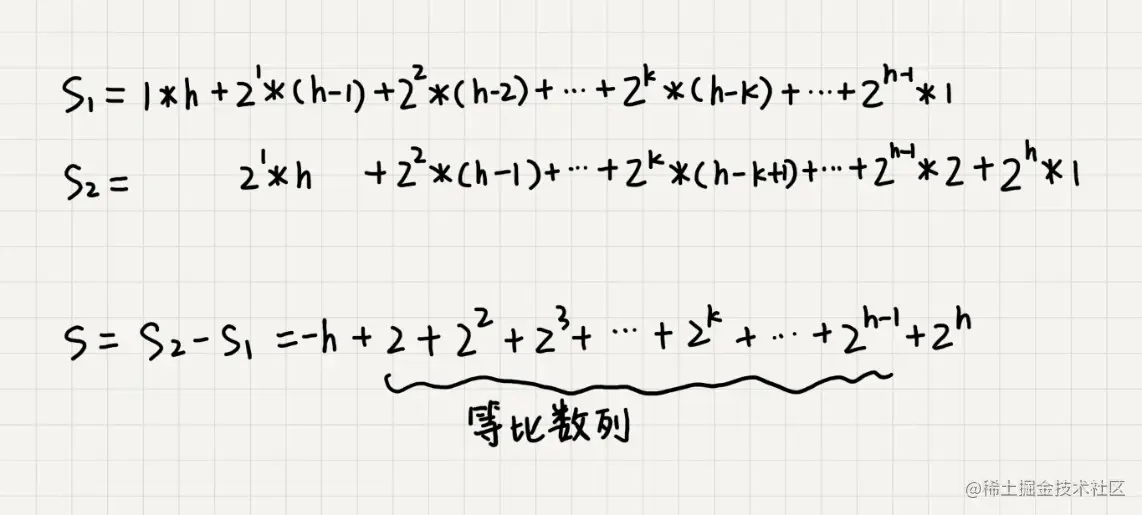 S₁ = 1*h + 2¹*(h-1) + 2²*(h-2) + ··· + 2ᵏ*(h-k) + ··· + 2ʰ⁻¹*1
S₂ = 2¹*h + 2²*(h-1) + ··· + 2ᵏ*(h-k+1) + ··· + 2ʰ⁻¹*2 + 2ʰ*1
S = S₂ - S₁ = -h + 2 + 2² + 2³ + ··· + 2ᵏ + ··· + 2ʰ⁻¹ + 2ʰ
等比数列
@稀土掘金技术社区